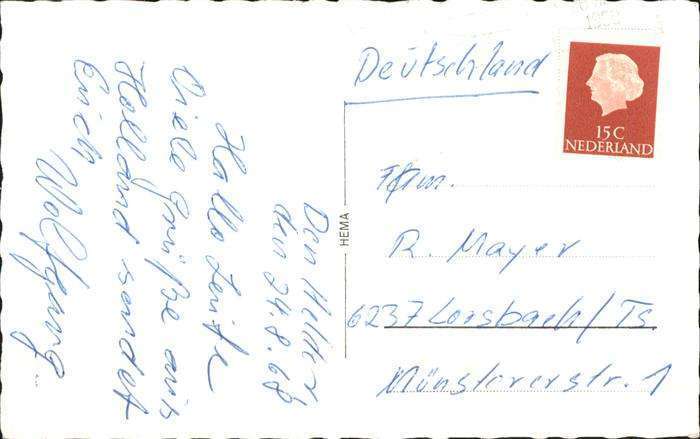 Den Helder
den 24.8.68
Hallo Leute
Viele Grüße aus
Holland sendet
Euch
Wolfgang
HEMA
Deutschland
15C
NEDERLAND
Fam.
R. Mayer
6237 Lorsbach/Ts
Münstererstr. 1